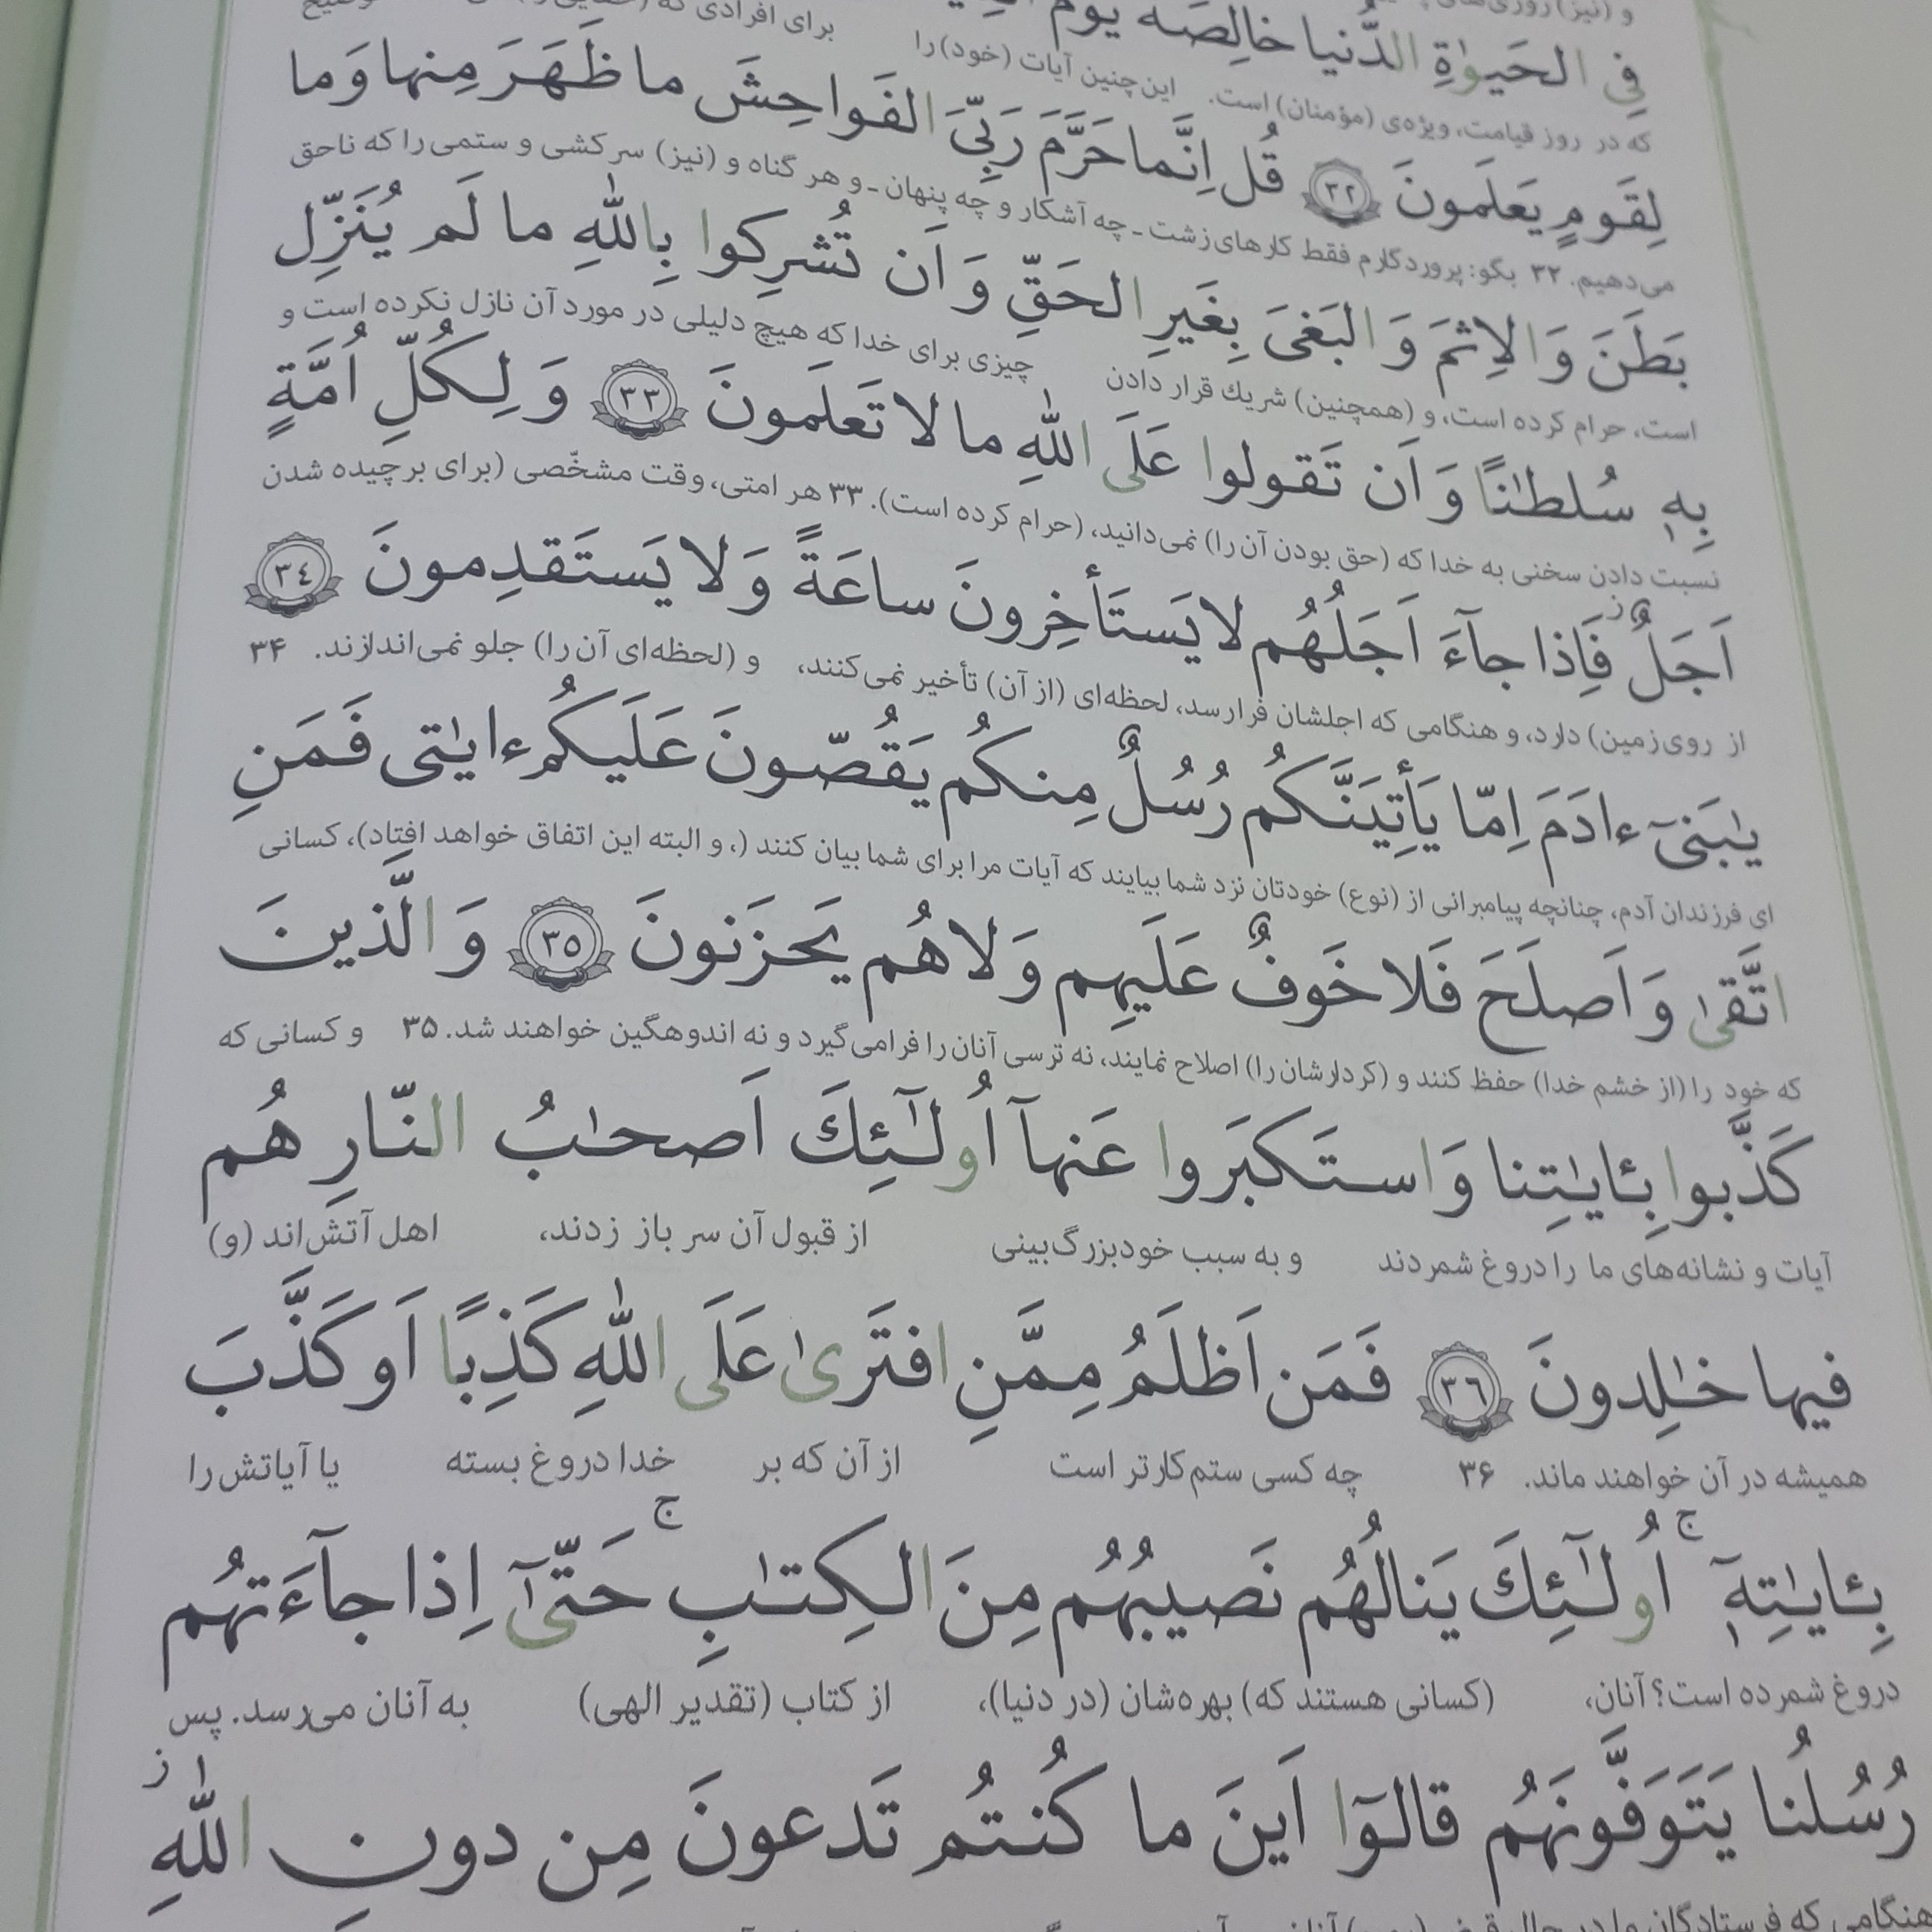 و (نیز) روزی‌های
فِی الحَیوٰةِ الدُّنیا خالِصَةً یَومَ
که در روز قیامت، ویژه‌ی (مؤمنان) است. این چنین آیات (خود) را برای افرادی که
لِقَومٍ یَعلَمونَ ﴿٣٢﴾ قُل اِنَّما حَرَّمَ رَبِّیَ الفَواحِشَ ما ظَهَرَ مِنها وَ ما
می‌دهیم. ۳۲ بگو: پروردگارم فقط کارهای زشت ـ چه آشکار و چه پنهان ـ و هر گناه و (نیز) سرکشی و ستمی را که ناحق
بَطَنَ وَ الاِثمَ وَ البَغیَ بِغَیرِ الحَقِّ وَ اَن تُشرِکوا بِاللّٰهِ ما لَم یُنَزِّل
است، حرام کرده است، و (همچنین) شریك قرار دادن چیزی برای خدا که هیچ دلیلی در مورد آن نازل نکرده است و
بِهٖ سُلطٰنًا وَ اَن تَقولوا عَلَی اللّٰهِ ما لا تَعلَمونَ ﴿٣٣﴾ وَ لِکُلِّ اُمَّةٍ
نسبت دادن سخنی به خدا که (حق بودن آن را) نمی‌دانید، (حرام کرده است). ۳۳ هر امتی، وقت مشخّصی (برای برچیده شدن
اَجَلٌ ز فَاِذا جآءَ اَجَلُهُم لا یَستَأخِرونَ ساعَةً وَ لا یَستَقدِمونَ ﴿٣٤﴾
از روی زمین) دارد، و هنگامی که اجلشان فرا رسد، لحظه‌ای (از آن) تأخیر نمی‌کنند، و (لحظه‌ای آن را) جلو نمی‌اندازند. ۳۴
یٰبَنیٓ ءادَمَ اِمّا یَأتِیَنَّکُم رُسُلٌ مِنکُم یَقُصّونَ عَلَیکُم ءایٰتی فَمَنِ
ای فرزندان آدم، چنانچه پیامبرانی از (نوع) خودتان نزد شما بیایند که آیات مرا برای شما بیان کنند (، و البته این اتفاق خواهد افتاد)، کسانی
اتَّقیٰ وَ اَصلَحَ فَلا خَوفٌ عَلَیهِم وَ لا هُم یَحزَنونَ ﴿٣٥﴾ وَ الَّذینَ
که خود را (از خشم خدا) حفظ کنند و (کردارشان را) اصلاح نمایند، نه ترسی آنان را فرا می‌گیرد و نه اندوهگین خواهند شد. ۳۵ و کسانی که
کَذَّبوا بِـٔایٰتِنا وَ استَکبَروا عَنهآ اُولٰٓئِكَ اَصحٰبُ النّارِ هُم
آیات و نشانه‌های ما را دروغ شمردند و به سبب خودبزرگ‌بینی از قبول آن سر باز زدند، اهل آتش‌اند (و)
فیها خٰلِدونَ ﴿٣٦﴾ فَمَن اَظلَمُ مِمَّنِ افتَریٰ عَلَی اللّٰهِ کَذِبًا اَو کَذَّبَ
همیشه در آن خواهند ماند. ۳۶ چه کسی ستم‌کارتر است از آن که بر خدا دروغ بسته یا آیاتش را
بِـٔایٰتِهٖٓ ج اُولٰٓئِكَ یَنالُهُم نَصیبُهُم مِنَ الکِتٰبِ ج حَتّیٰٓ اِذا جآءَتهُم
دروغ شمرده است؟ آنان، (کسانی هستند که) بهره‌شان (در دنیا)، از کتاب (تقدیر الهی) به آنان می‌رسد. پس
رُسُلُنا یَتَوَفَّونَهُم قالوٓا اَینَ ما کُنتُم تَدعونَ مِن دونِ اللّٰهِ ز
هنگامی که فرستادگان ما در حال